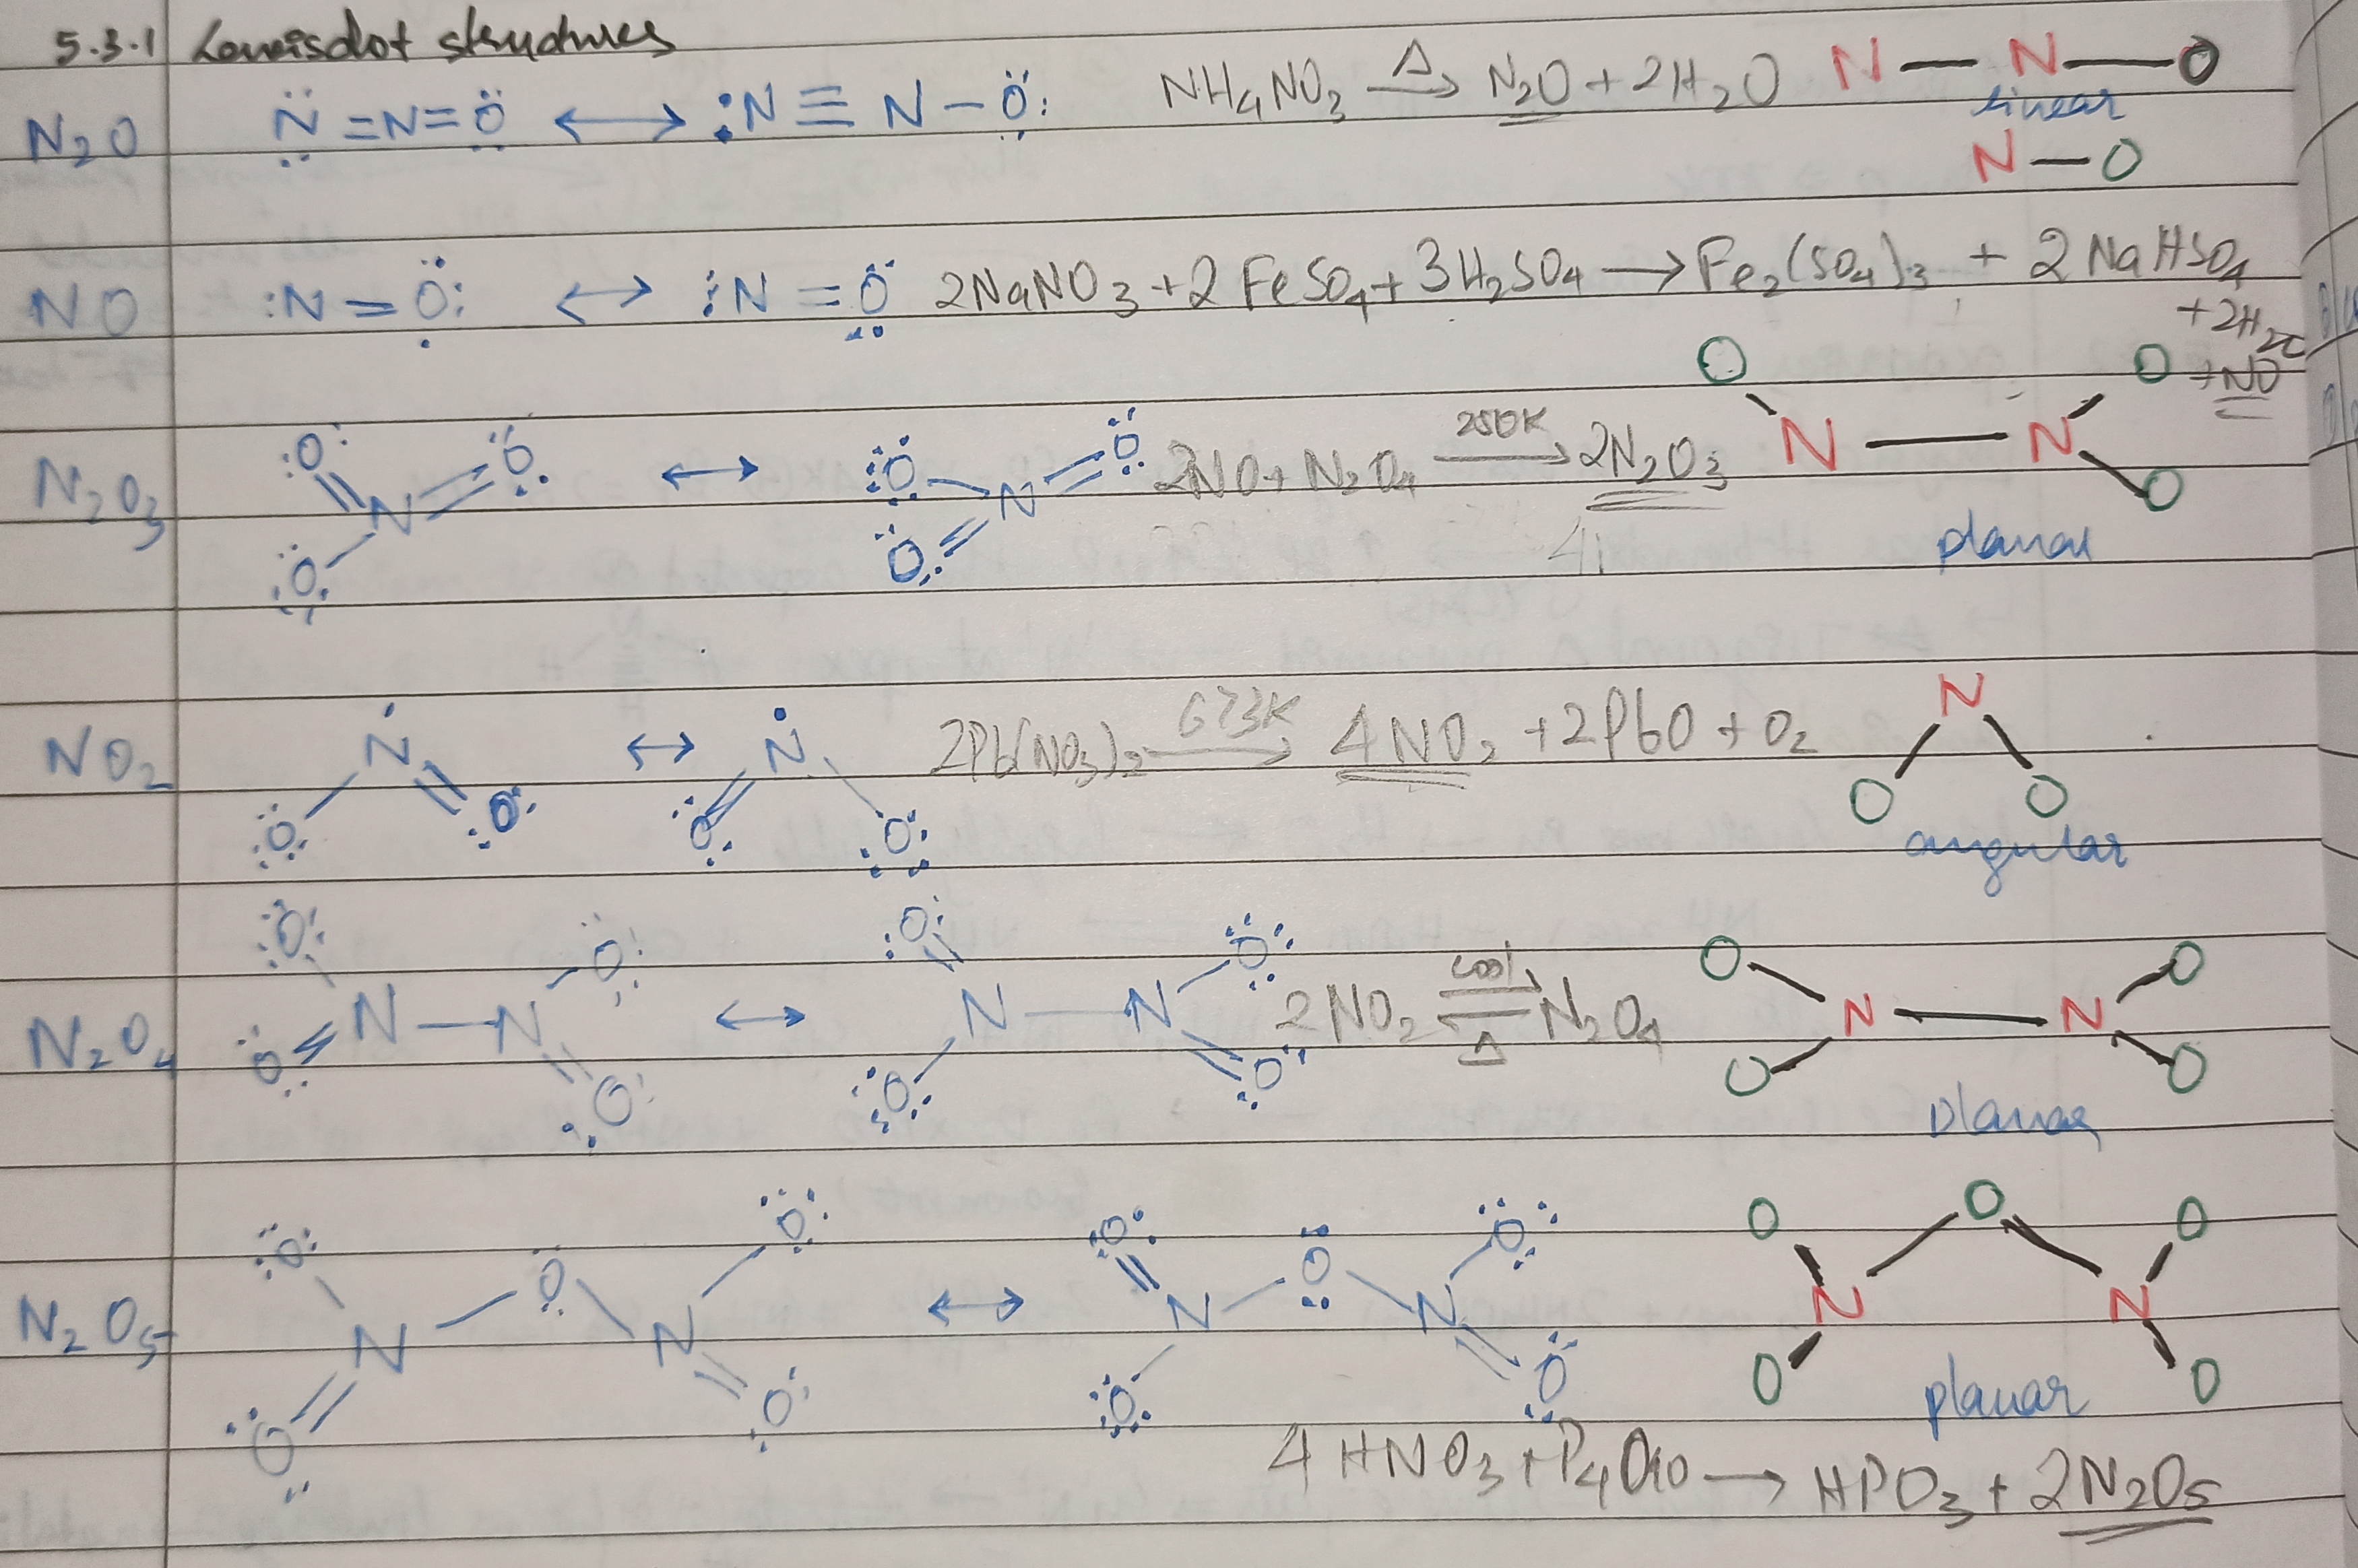 5.3.1 Lewisdot structures
N₂O N̈=N=Ö ⟷ :N≡N-Ö: NH₄NO₃ →(Δ) N₂O+2H₂O N—N—O
linear
N—O
NO :N=O: ⟷ :N=O 2NaNO₃+2FeSO₄+3H₂SO₄⟶Fe₂(SO₄)₃ + 2NaHSO₄
+2H₂O
+NO
O O
N₂O₃ O O ⟷ O O 2NO+N₂O₄ →(250K) 2N₂O₃ N—N
N N
O O O
planar
NO₂ N ⟷ N 2Pb(NO₃)₂ →(673K) 4NO₂+2PbO+O₂ N
O O O O O O
angular
O O O O O O
N₂O₄ N—N ⟷ N—N 2NO₂ ⇌(cool/Δ) N₂O₄ N—N
O O O O O O
planar
O O O O O O O O O
N₂O₅ N N ⟷ N N N N
O O O O O O
planar
4HNO₃+P₄O₁₀⟶HPO₃+2N₂O₅